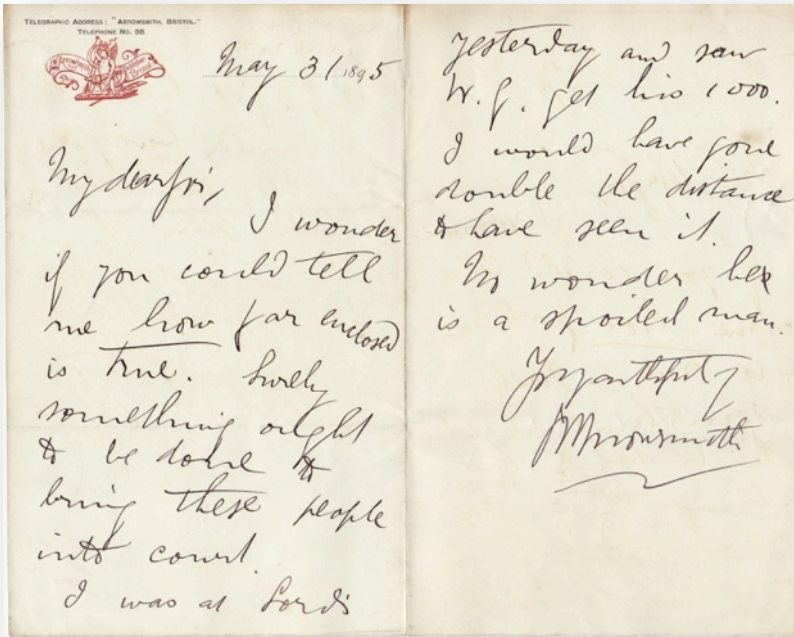 TELEGRAPHIC ADDRESS: "ARROWSMITH, BRISTOL."
TELEPHONE NO. 98.
May 31 1895
My dear Sir,
I wonder
if you could tell
me how far enclosed
is true. Surely
something ought
to be done to
bring these people
into court.
I was at Lord's
yesterday and saw
W. G. get his 1000.
I would have gone
double the distance
to have seen it.
No wonder he
is a spoiled man.
Yrs faithfully
JWArrowsmith